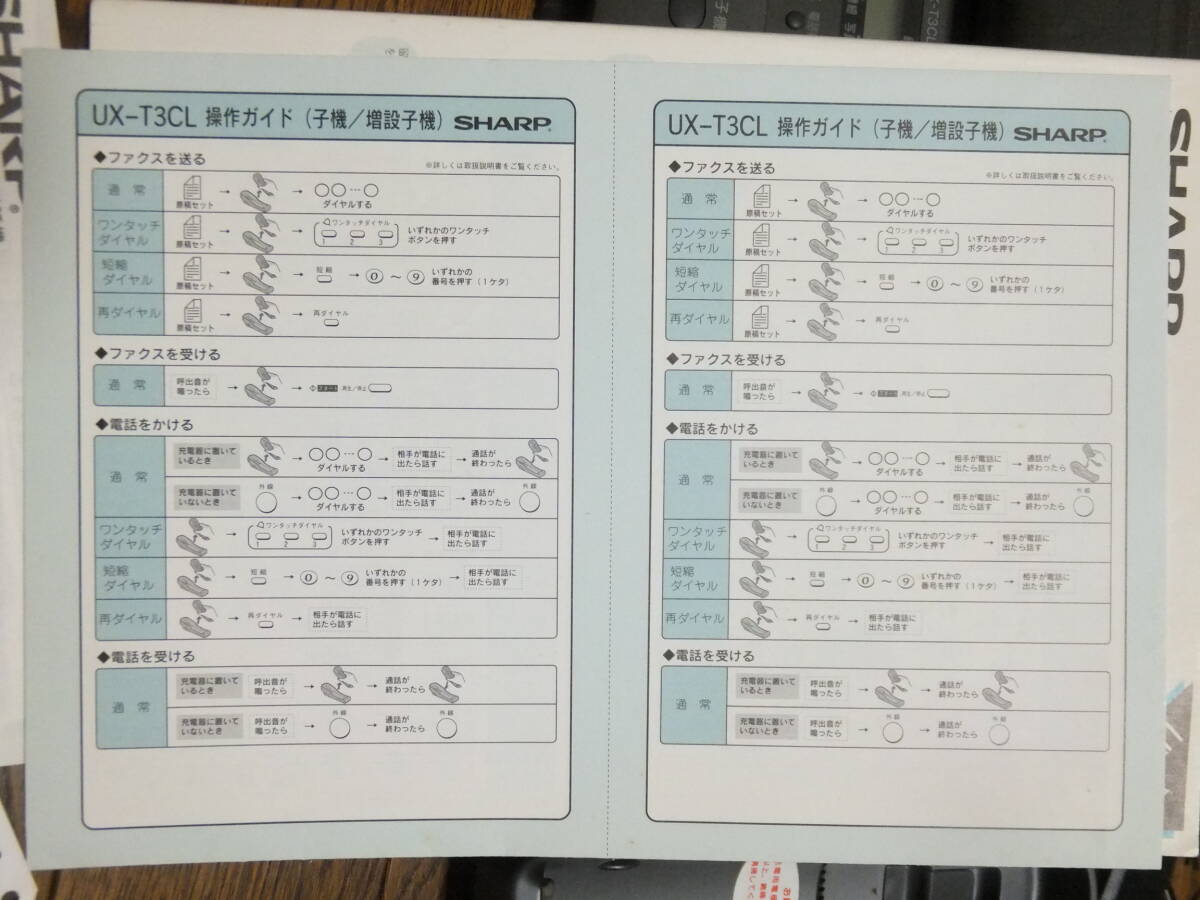 UX-T3CL 操作ガイド（子機／増設子機） SHARP
◆ファクスを送る
※詳しくは取扱説明書をご覧ください。
通常
原稿セット
ダイヤルする
ワンタッチ
ダイヤル
原稿セット
ワンタッチダイヤル
1 2 3
いずれかのワンタッチ
ボタンを押す
短縮
ダイヤル
原稿セット
短縮
0 ～ 9
いずれかの
番号を押す（1ケタ）
再ダイヤル
原稿セット
再ダイヤル
◆ファクスを受ける
通常
呼出音が
鳴ったら
スタート 再生／停止
◆電話をかける
通常
充電器に置いて
いるとき
ダイヤルする
相手が電話に
出たら話す
通話が
終わったら
充電器に置いて
いないとき
外線
ダイヤルする
相手が電話に
出たら話す
通話が
終わったら
外線
ワンタッチ
ダイヤル
ワンタッチダイヤル
1 2 3
いずれかのワンタッチ
ボタンを押す
相手が電話に
出たら話す
短縮
ダイヤル
短縮
0 ～ 9
いずれかの
番号を押す（1ケタ）
相手が電話に
出たら話す
再ダイヤル
再ダイヤル
相手が電話に
出たら話す
◆電話を受ける
通常
充電器に置いて
いるとき
呼出音が
鳴ったら
通話が
終わったら
充電器に置いて
いないとき
呼出音が
鳴ったら
外線
通話が
終わったら
外線
UX-T3CL 操作ガイド（子機／増設子機） SHARP
◆ファクスを送る
※詳しくは取扱説明書をご覧ください。
通常
原稿セット
ダイヤルする
ワンタッチ
ダイヤル
原稿セット
ワンタッチダイヤル
1 2 3
いずれかのワンタッチ
ボタンを押す
短縮
ダイヤル
原稿セット
短縮
0 ～ 9
いずれかの
番号を押す（1ケタ）
再ダイヤル
原稿セット
再ダイヤル
◆ファクスを受ける
通常
呼出音が
鳴ったら
スタート 再生／停止
◆電話をかける
通常
充電器に置いて
いるとき
ダイヤルする
相手が電話に
出たら話す
通話が
終わったら
充電器に置いて
いないとき
外線
ダイヤルする
相手が電話に
出たら話す
通話が
終わったら
外線
ワンタッチ
ダイヤル
ワンタッチダイヤル
1 2 3
いずれかのワンタッチ
ボタンを押す
相手が電話に
出たら話す
短縮
ダイヤル
短縮
0 ～ 9
いずれかの
番号を押す（1ケタ）
相手が電話に
出たら話す
再ダイヤル
再ダイヤル
相手が電話に
出たら話す
◆電話を受ける
通常
充電器に置いて
いるとき
呼出音が
鳴ったら
通話が
終わったら
充電器に置いて
いないとき
呼出音が
鳴ったら
外線
通話が
終わったら
外線
SHARP
SHARP